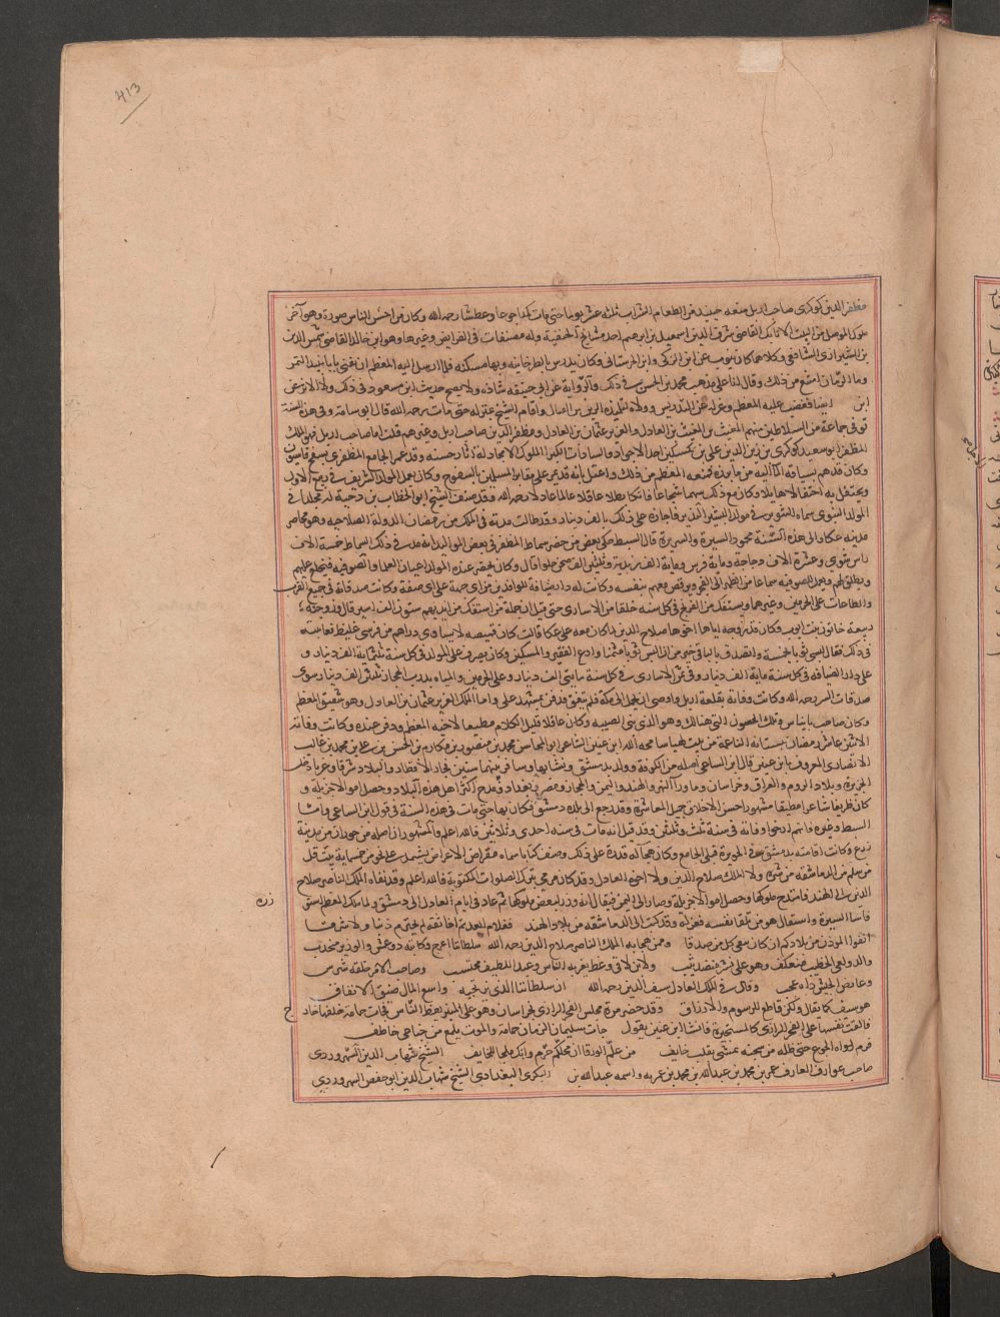 413
مظفر الدين كوكرى صاحب اربل منعه حينيذ من الطعام والشراب ثلثة عشر يوما حتى مات كمدا جوعا وعطشا رحمه الله وكان من احسن الناس صورة وهو آخر
ملوك الموصل من البيت الاتابكى القاضى شرف الدين اسمعيل بن ابرهيم احد مشايخ الحنفية وله مصنفات فى الفرايض وغيرها وهو ابن خالة القاضى شمس الدين
بن الشيرازى الشافعى وكلاهما كان ينوب عن ابن الزكى وابن الحرستانى وكان يدرس بالطرخانيه وبها مسكنه فلما ارسل اليه المعظم ان يفتى باباحة نبيذ التمر
وماء الرمان امتنع من ذلك وقال انا على مذهب محمد بن الحسن فى ذلك والرواية عن ابى حنيفه شاذه ولا يصح حديث ابن مسعود فى ذلك ولا الاثر عن
ابن ايضا فغضب عليه المعظم وعزله عن التدريس وولاه لتلميذه الزين بن العتال واقام الشيخ بمنزله حتى مات رحمه الله قال ابو شامة وفى هذه السنة
توفى جماعة من السلاطين منهم المغيث بن المغيث بن العادل والعزيز عثمان بن العادل ومظفر الدين صاحب اربل وغيرهم قلت اما صاحب اربل فهو الملك
المظفر ابو سعيد كوكرى بن زين الدين على بن بكتكين احد الاجواد والسادات الكبرا والملوك الامجاد له آثار حسنه وقد عمر الجامع المظفرى بسفح قاسيون
وكان قد هم بسياقه الماء اليه من ماء برزة فمنعه المعظم من ذلك واعتل بانه قد يمر على مقابر المسلمين بالسفوح وكان يعمل المولد الشريف فى ربيع الاول
ويحتفل به احتفالا هايلا وكان مع ذلك شهما شجاعا فاتكا بطلا عاقلا عالما عادلا رحمه الله وقد صنف الشيخ ابو الخطاب بن دحية له مجلدا فى
المولد النبوى سماه التنوير فى مولد البشير النذير فاجازه على ذلك بالف دينار وقد طالت مدته فى الملك من زمان الدولة الصلاحيه وهو محاصر
مدينه عكا والى هذه السنة محمود السيرة والسريرة قال السبط حكى بعض من حضر سماط المظفر فى بعض الموالد انه مد فى ذلك السماط خمسة الاف
راس شوى وعشرة الاف دجاجة وماية فرس وماية الف زبدية وثلثين الف صحن حلوا قال وكان يحضر عنده المولد اعيان العلماء والصوفيه فيخلع عليهم
ويطلق لهم ويعمل للصوفيه سماعا من الظهر الى الفجر ويرقص معهم بنفسه وكانت له دار ضيافة للوافدين من اى جهة على اى صفة وكانت صدقاته فى جميع القرب
والطاعات على الحرمين وغيرهما ويستفك من الفرنج فى كل سنه خلقا من الاسارى حتى قيل ان جملة من استفك من ايديهم ستون الف اسير قال وزوجته
ربيعة خاتون بنت ايوب وكان قد زوجه اياها اخوها صلاح الدين لما كان معه على عكا قالت كان قميصه لا يساوى دراهم من كرسى غليظ فعاتبته
فى ذلك فقال لبسى ثوبا بخمسة واتصدق بالباقى خير من ان البس ثوبا مثمنا وادع الفقير والمسكين وكان يصرف على المولد فى كل سنة ثلثماية الف دينار و
على دار الضيافة فى كل سنة ماية الف دينار وفى فك الاسارى فى كل سنة مايتى الف دينار وعلى الحرمين والمياه بدرب الحجاز ثلثين الف دينار سوى
صدقات السر رحمه الله وكانت وفاته بقلعة اربل واوصى ان يحمل الى مكة فلم يتفق فدفن بمشهد على واما الملك العزيز عثمان بن العادل وهو شقيق المعظم
وكان صاحب بانياس وتلك الحصون التى هنالك وهو الذى بنى الصبيبه وكان عاقلا قليل الكلام مطيعا لاخيه المعظم ودفن عنده وكانت وفاته
الاثنين عاشر رمضان ببستانه الناعمة من بيت لهيا سامحه الله ابن عنين الشاعر ابو المحاسن محمد بن منصور بن مكارم بن الحسن بن على بن محمد بن غالب
الانصارى المعروف بابن عنين قال ابن الساعى اصله من الكوفة وولد بدمشق ونشا بها وسافر عنها سنين فجاب الاقطار والبلاد شرقا وغربا ودخل
الجزيرة وبلاد الروم والعراق وخراسان وما ورا النهر والهند واليمن والحجاز ومصر وبغداد ومدح اكثر اهل هذه البلاد وحصل اموالا جزيلة و
كان ظريفا شاعرا مطيقا مشهورا حسن الاخلاق جميل المعاشرة وقد رجع الى بلده دمشق فكان بها حتى مات فى هذه السنة فى قول ابن الساعى واما
السبط وغيره فانهم ارخوا وفاته فى سنة ثلث وثلثين وقد قيل انه مات فى سنه احدى وثلاثين فالله اعلم والمشهور ان اصله من حوران من مدينة
زرع وكانت اقامته بدمشق فى الجزيرة قبلى الجامع وكان هجاء له قدرة على ذلك وصنف كتابا سماه مقراض الاعراض يشتمل على نحو من خمسماية بيت قل
زره
من سلم من الدماشقه من شره ولا الملك صلاح الدين ولا اخوه العادل وقد كان يرمى بترك الصلوات المكتوبة فالله اعلم وقد نفاه الملك الناصر صلاح
الدين الى الهند فامتدح ملوكها وحصل اموالا جزيلة وصار الى اليمن فيقال انه وزر لبعض ملوكها ثم عاد فى ايام العادل الى دمشق ولما ملك المعظم استوزره
فاساء السيرة واستقال هو من تلقاء نفسه فعزله وقد كتب الى الدماشقه من بلاد الهند فعلام ابعدتم اخا ثقة لم يجترم ذنبا ولا سرقا
انفوا الموذن من بلادكم ان كان ينفى كل من صدقا وممن هجا به الملك الناصر صلاح الدين رحمه الله سلطاننا اعرج وكاتبه ذو عمش والوزير منحدب
والدولعى الخطيب معتكف وهو على قشر بيضة يثب ولابن لاقى وعظ يغر به الناس وعبد اللطيف محتسب وصاحب الامر خلقه شرس
وعارض الجيش داءه عجب وقال فى الملك العادل سيف الدين رحمه الله ان سلطاننا الذى نرتجيه واسع المال ضيق الانفاق
هو سيف كما يقال ولكن قاطع للرسوم والارزاق وقد حضر مرة مجلس الفخر الرازى بخراسان وهو على المنبر يعظ الناس فجات حمامة خلفها جارح
فالقت نفسها على الفخر الرازى كالمستجيرة فانشا ابن عنين يقول جات سليمان الزمان حمامة والموت يلمع من جناحى خاطف
قرم لواه الجوع حتى ظله من تحته يمشى بقلب خايف من علم الورقا ان محلكم حرم وانك ملجا للخايف الشيخ شهاب الدين السهروردى
صاحب عوارف المعارف عمر بن محمد بن عبد الله بن محمد بن عمويه واسمه عبد الله بن البكرى البغدادى الشيخ شهاب الدين ابو حفص السهروردى